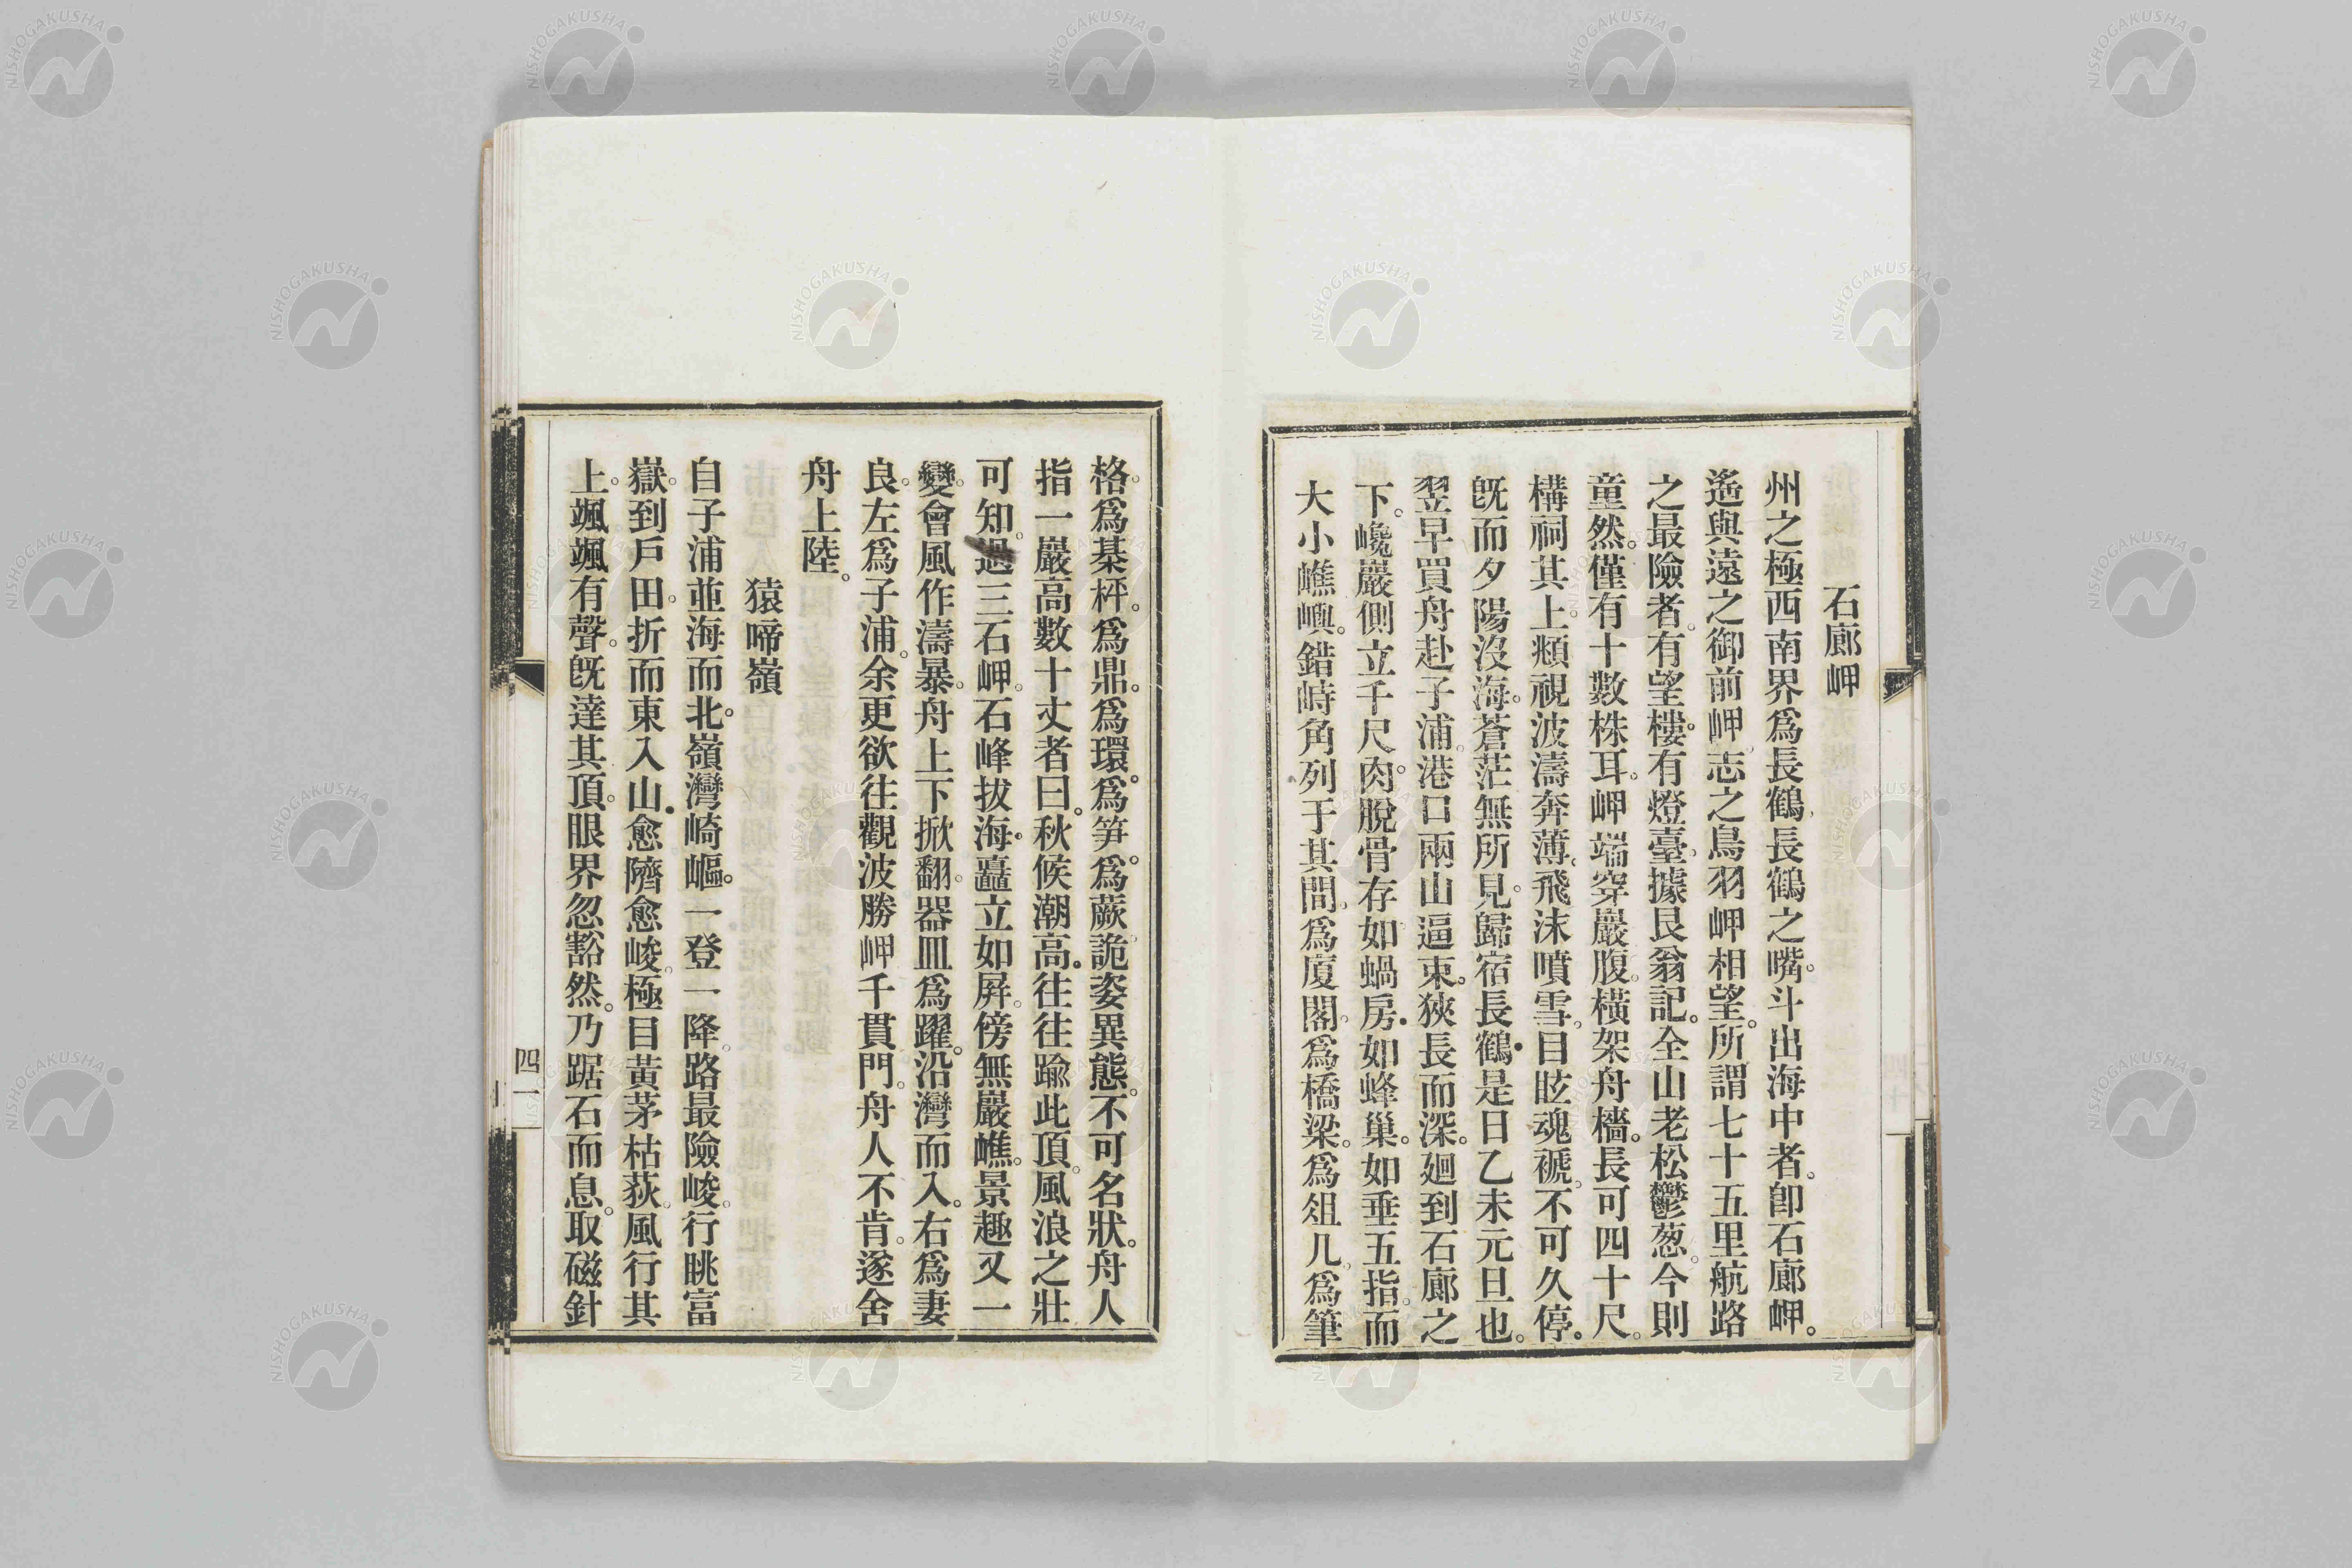 石廊岬
州之極西南界爲長鶴。長鶴之嘴。斗出海中者。卽石廊岬。
遙與遠之御前岬。志之鳥羽岬相望。所謂七十五里航路
之最險者。有望樓。有燈臺。據艮翁記。全山老松鬱葱。今則
童然。僅有十數株耳。岬端穿巖腹。橫架舟檣。長可四十尺。
構祠其上。頫視波濤奔薄。飛沫噴雪。目眩魂褫。不可久停。
旣而夕陽沒海。蒼茫無所見。歸宿長鶴。是日乙未元旦也。
翌早買舟赴子浦。港口兩山逼束。狹長而深。廻到石廊之
下。巉巖側立千尺。肉脫骨存。如蝸房。如蜂巢。如垂五指。而
大小嶕嶼。錯峙角列于其間。爲廈閣。爲橋梁。爲俎几。爲筆
格。爲棊枰。爲鼎。爲環。爲笋。爲蕨。詭姿異態。不可名狀。舟人
指一巖高數十丈者曰。秋候潮高。往往踰此頂。風浪之壯
可知。過三石岬。石峰拔海。矗立如屛。傍無巖嶕。景趣又一
變。會風作濤暴。舟上下掀翻。器皿爲躍。沿灣而入。右爲妻
良。左爲子浦。余更欲往觀波勝岬千貫門。舟人不肯。遂舍
舟上陸。
猿啼嶺
自子浦並海而北。嶺灣崎嶇。一登一降。路最險峻。行眺富
嶽。到戶田。折而東入山。愈隮愈峻。極目黃茅枯荻。風行其
上。颯颯有聲。旣達其頂。眼界忽豁然。乃踞石而息。取磁針
四一
NISHOGAKUSHA